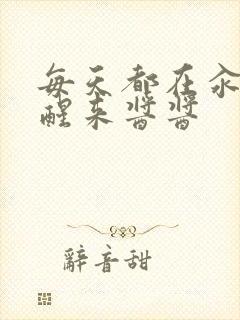 每天都在汆
醒来酱酱
辭音甜